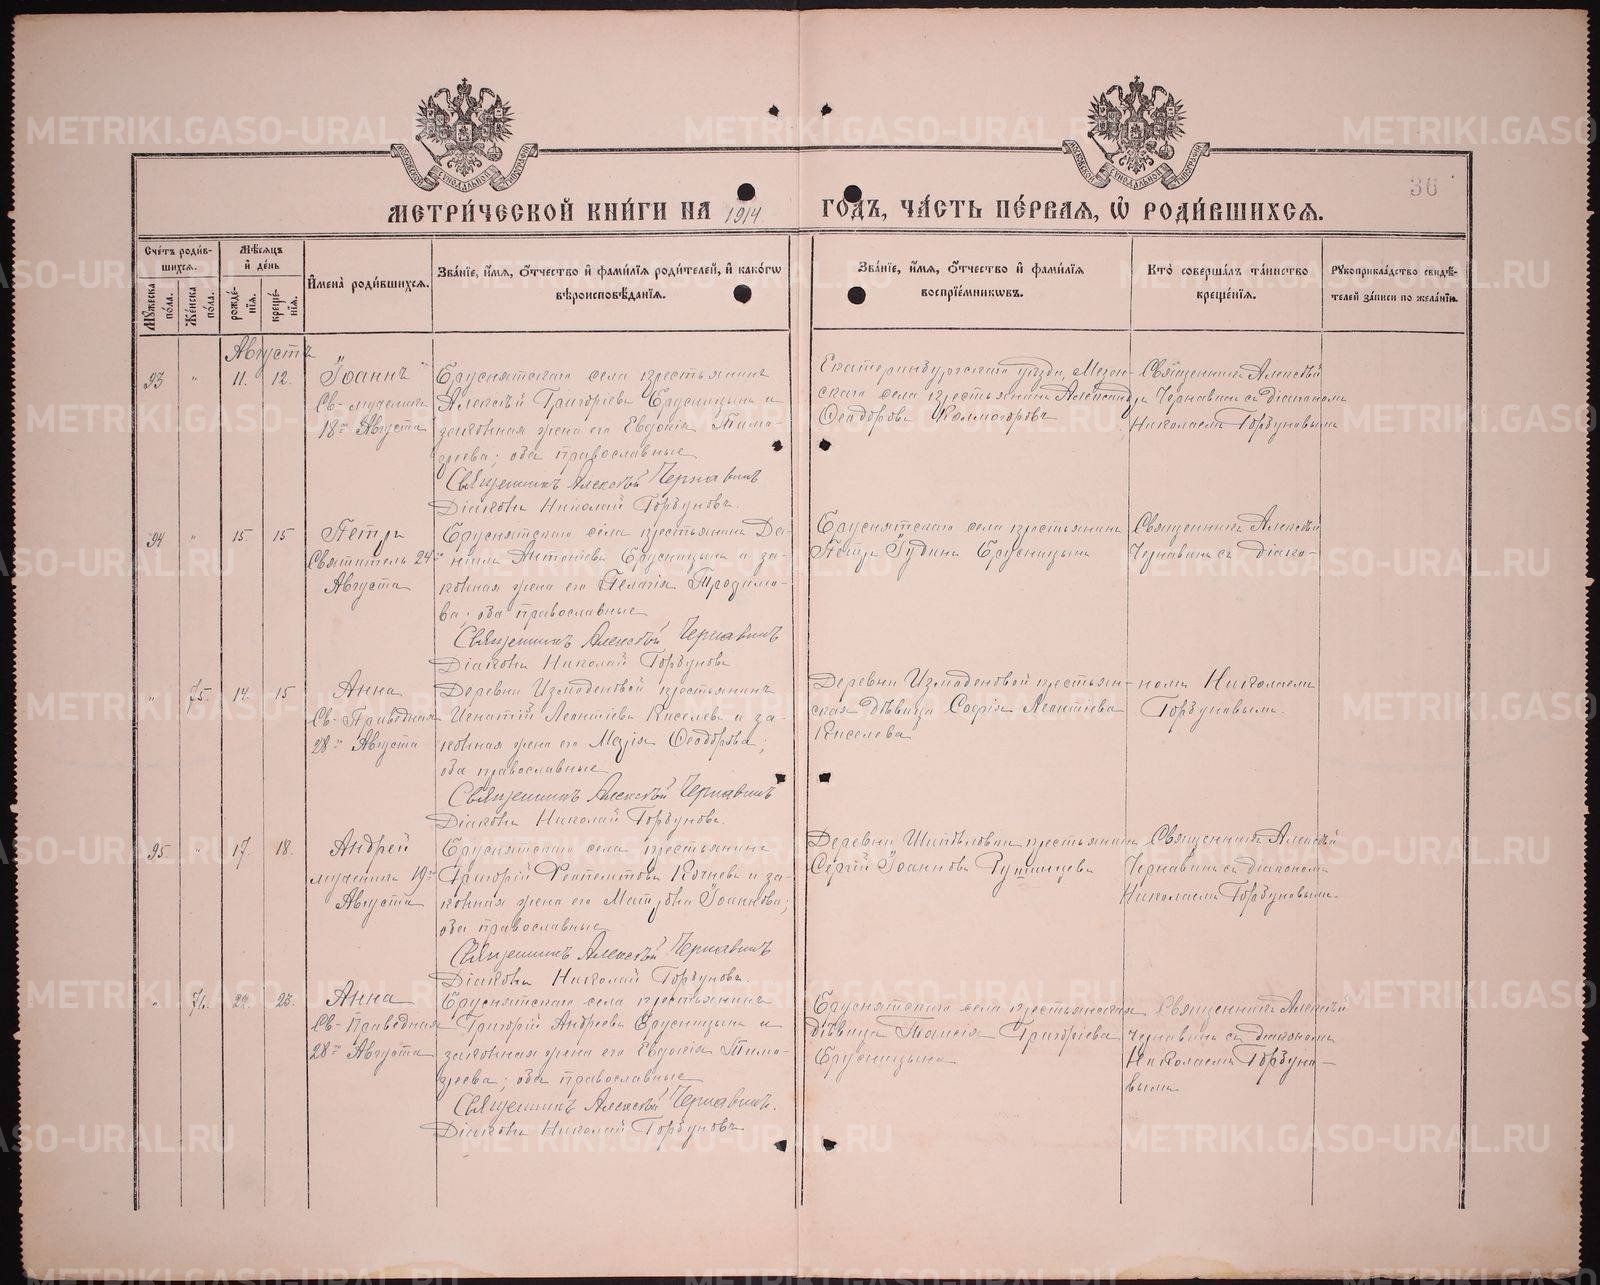 36
МЕТРИ́ЧЕСКОЙ КНИ́ГИ НА 1914 ГО́ДЪ, ЧА́СТЬ ПЕ́РВАЯ, Ѡ РОДИ́ВШИХСЯ.
Сче́тъ роди́вшихся.
Му́жеска по́ла.
Же́нска по́ла.
Мѣ́сяцъ и де́нь
рожде́нїя.
креще́нїя.
Имена̀ роди́вшихся.
Зва́нїе, и́мя, о́тчество и фами́лїя роди́телей, и како́гѡ вѣроисповѣ́данїя.
Зва́нїе, и́мя, о́тчество и фами́лїя воспрїе́мникѡвъ.
Кто̀ соверша́лъ та́инство креще́нїя.
Рукоприкла́дство свидѣ́телей за́писи по жела́нїю.
Августъ
93 " 11. 12.
Іоаннъ
Св. мученика
18го Августа
Бруснятскаго села крестьянинъ
Алексѣй Григоріевъ Брусницынъ и
законная жена его Евдокія Тимо-
ѳеева; оба православные
Священникъ Алексѣй Чернавинъ
Діаконъ Николай Горбуновъ.
Екатеринбургскаго уѣзда, Мезен-
скаго села крестьянинъ Александръ
Ѳеодоровъ Колмогоровъ
Священникъ Алексѣй
Чернавинъ съ діакономъ
Николаемъ Горбуновымъ
94 " 15. 15
Петръ
Святитель 24го
Августа
Бруснятскаго села крестьянинъ Да-
ніилъ Антоніевъ Брусницынъ и за-
конная жена его Пелагія
ва; оба православные
Священникъ Алексѣй Чернавинъ
Діаконъ Николай Горбуновъ
Бруснятскаго села крестьянинъ
Петръ Іудинъ Брусницынъ
Священникъ Алексѣй
Чернавинъ съ діако-
" 75. 14. 15
Анна
Св. Праведная
28го Августа
Деревни Измоденовой крестьянинъ
Игнатій Леонтіевъ Киселевъ и за-
конная жена его Марія Ѳеодорова;
оба православные
Священникъ Алексѣй Чернавинъ
Діаконъ Николай Горбуновъ.
Деревни Измоденовой крестьян-
ская дѣвица Софія Леонтіева
Киселева
номъ Николаемъ
Горбуновымъ.
95 " 17. 18.
Андрей
мученикъ 19го
Августа
Бруснятскаго села крестьянинъ
Григорій Кочневъ и за-
конная жена его Матрона Іоаннова;
оба православные
Священникъ Алексѣй Чернавинъ
Діаконъ Николай Горбуновъ.
Деревни крестьянинъ
Сергій Іоанновъ
Священникъ Алексѣй
Чернавинъ съ діакономъ
Николаемъ Горбуновымъ.
" 76. 22. 23.
Анна
Св. Праведная
28го Августа
Бруснятскаго села крестьянинъ
Григорій Андреевъ Брусницынъ и
законная жена его Евдокія Тимо-
ѳеева; оба православные
Священникъ Алексѣй Чернавинъ.
Діаконъ Николай Горбуновъ
Бруснятскаго села крестьянская
дѣвица Таисія Григоріева
Брусницына
Священникъ Алексѣй
Чернавинъ съ діакономъ
Николаемъ Горбуно-
вымъ
METRIKI.GASO-URAL.RU